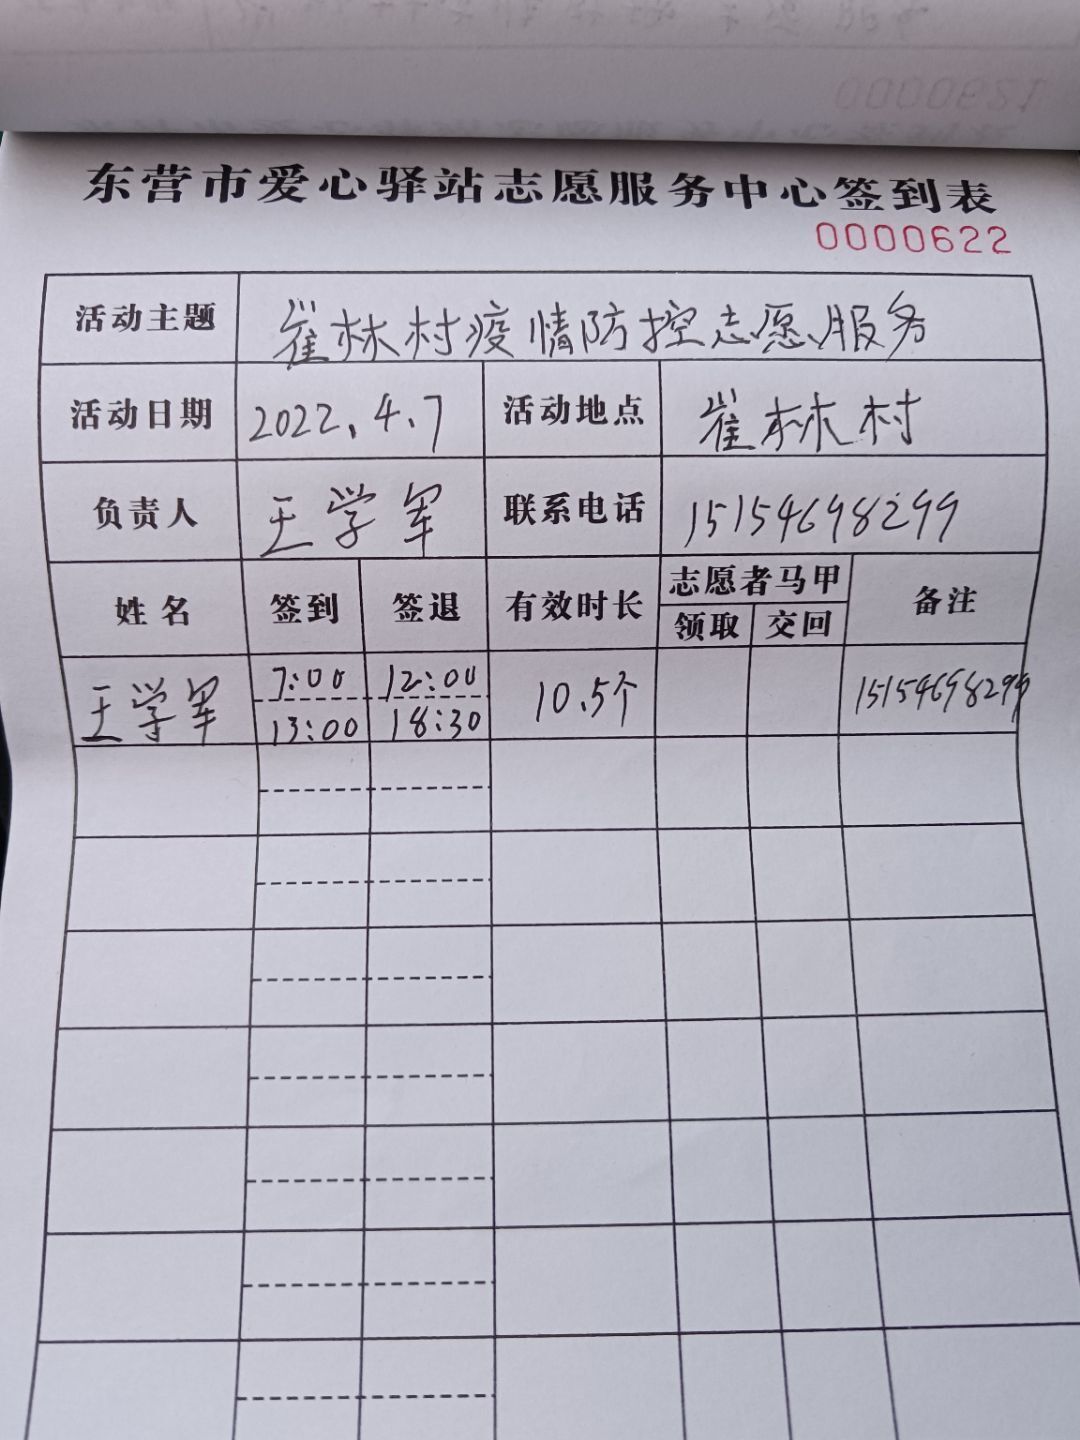 0000621
东营市爱心驿站志愿服务中心签到表
0000622
活动主题 崔林村疫情防控志愿服务
活动日期 2022.4.7 活动地点 崔林村
负责人 王学军 联系电话 15154698299
姓名 签到 签退 有效时长 志愿者马甲 备注
领取 交回
王学军 7:00 12:00 10.5个 15154698299
13:00 18:30